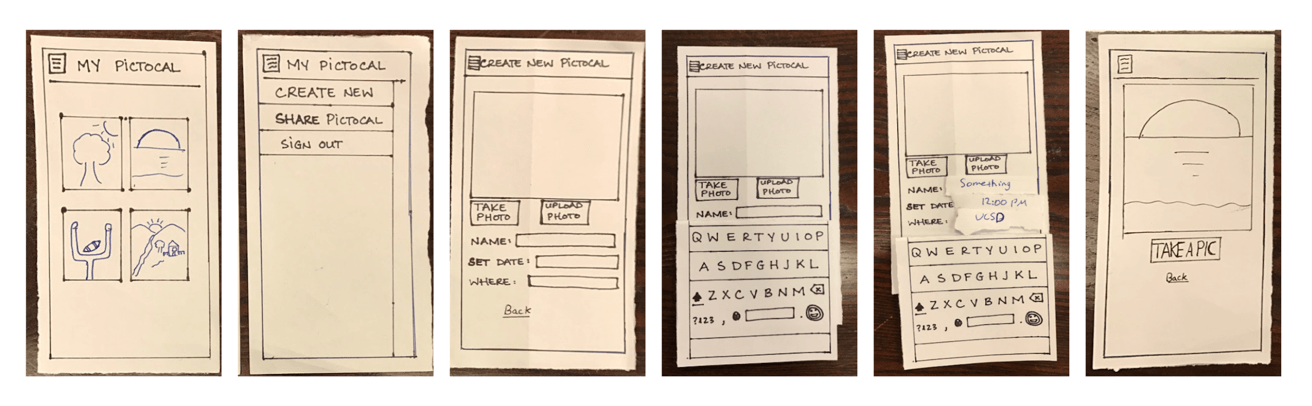 MY PICTOCAL
MY PICTOCAL
CREATE NEW
SHARE PICTOCAL
SIGN OUT
CREATE NEW PICTOCAL
TAKE PHOTO
UPLOAD PHOTO
NAME:
SET DATE:
WHERE:
Back
CREATE NEW PICTOCAL
TAKE PHOTO
UPLOAD PHOTO
NAME:
QWERTYUIOP
ASDFGHJKL
ZXCVBNM
?123 , .
CREATE NEW PICTOCAL
TAKE PHOTO
UPLOAD PHOTO
NAME: Something
SET DATE 12:00 PM
WHERE: UCSD
QWERTYUIOP
ASDFGHJKL
ZXCVBNM
?123 , .
TAKE A PIC
Back